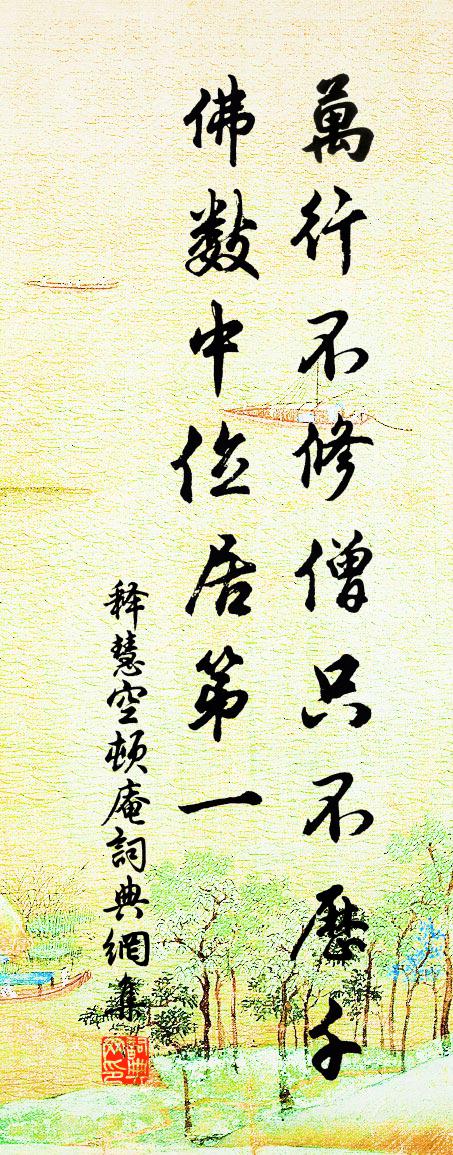 萬行不修僧只不歷千
佛數中位居第一
释慧空頓庵詞典網集